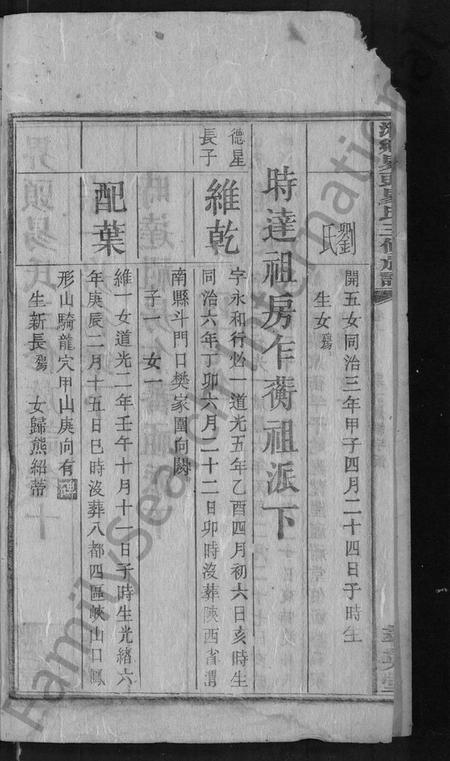 劉氏
開五女同治三年甲子四月二十四日子時生
生女殤
時達祖房乍蘅祖派下
德星長子
維乾
字永和行必一道光五年乙酉四月初六日亥時生
同治六年丁卯六月二十二日卯時沒葬陝西省渭
南縣斗門口樊家圍向闕
子一 女一
配葉
維一女道光二年壬午十月十一日子時生光緒六
年庚辰二月十五日巳時沒葬八都四區峽山口鳳
形山騎龍穴甲山庚向有碑
生新長殤 女歸熊紹蒂
FamilySearch International